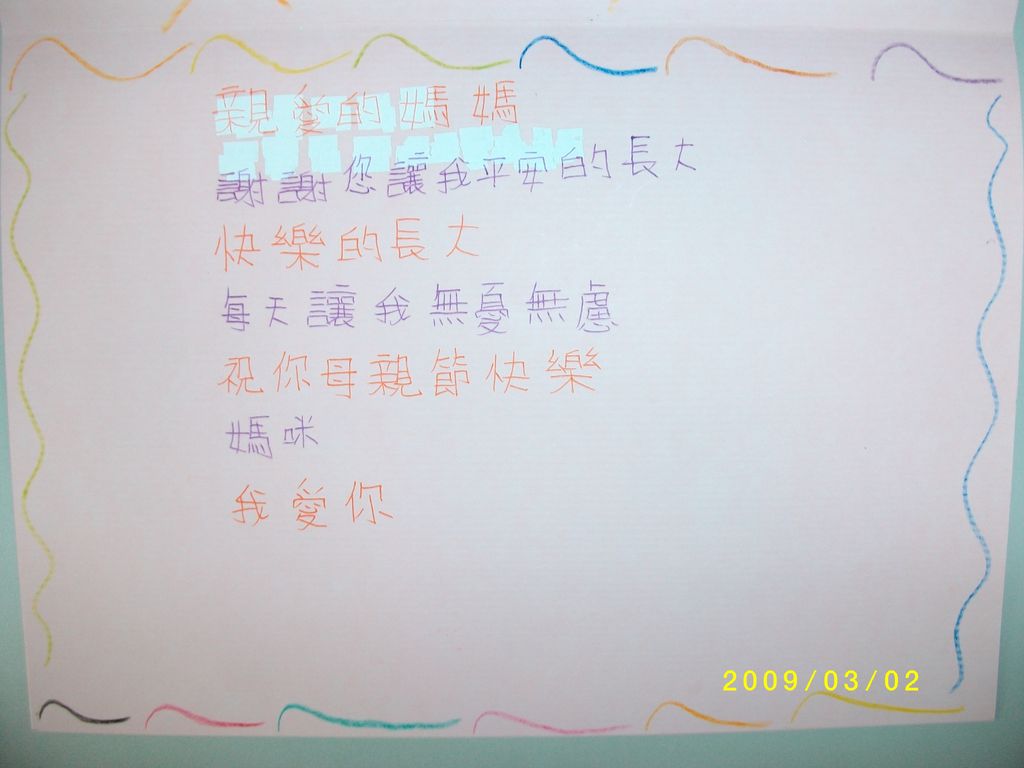 親愛的媽媽
謝謝您讓我平安的長大
快樂的長大
每天讓我無憂無慮
祝你母親節快樂
媽咪
我愛你
2009/03/02